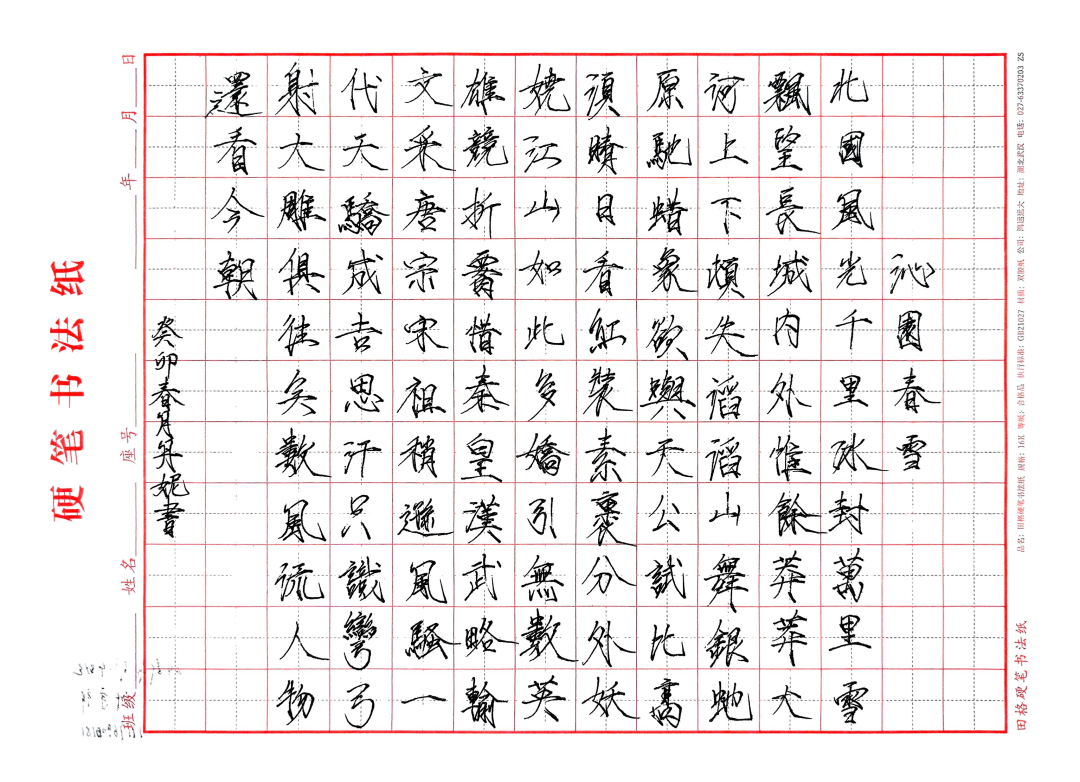 沁園春雪
北國風光千里冰封萬里雪
飄望長城内外惟餘莽莽大
河上下頓失滔滔山舞銀蛇
原馳蜡象欲與天公試比高
須晴日看紅裝素裹分外妖
嬈江山如此多嬌引無數英
雄競折腰惜秦皇漢武略輸
文采唐宗宋祖稍遜風騷一
代天驕成吉思汗只識彎弓
射大雕俱往矣數風流人物
還看今朝
癸卯春月丹妮書
硬笔书法纸
班级 姓名 座号 年 月 日
田格硬笔书法纸
品名：田格硬笔书法纸 规格：16K 等级：合格品 执行标准：GB21027 材质：双胶纸 公司：鸿运 地址：湖北武汉 电话：027-63370203 ZS